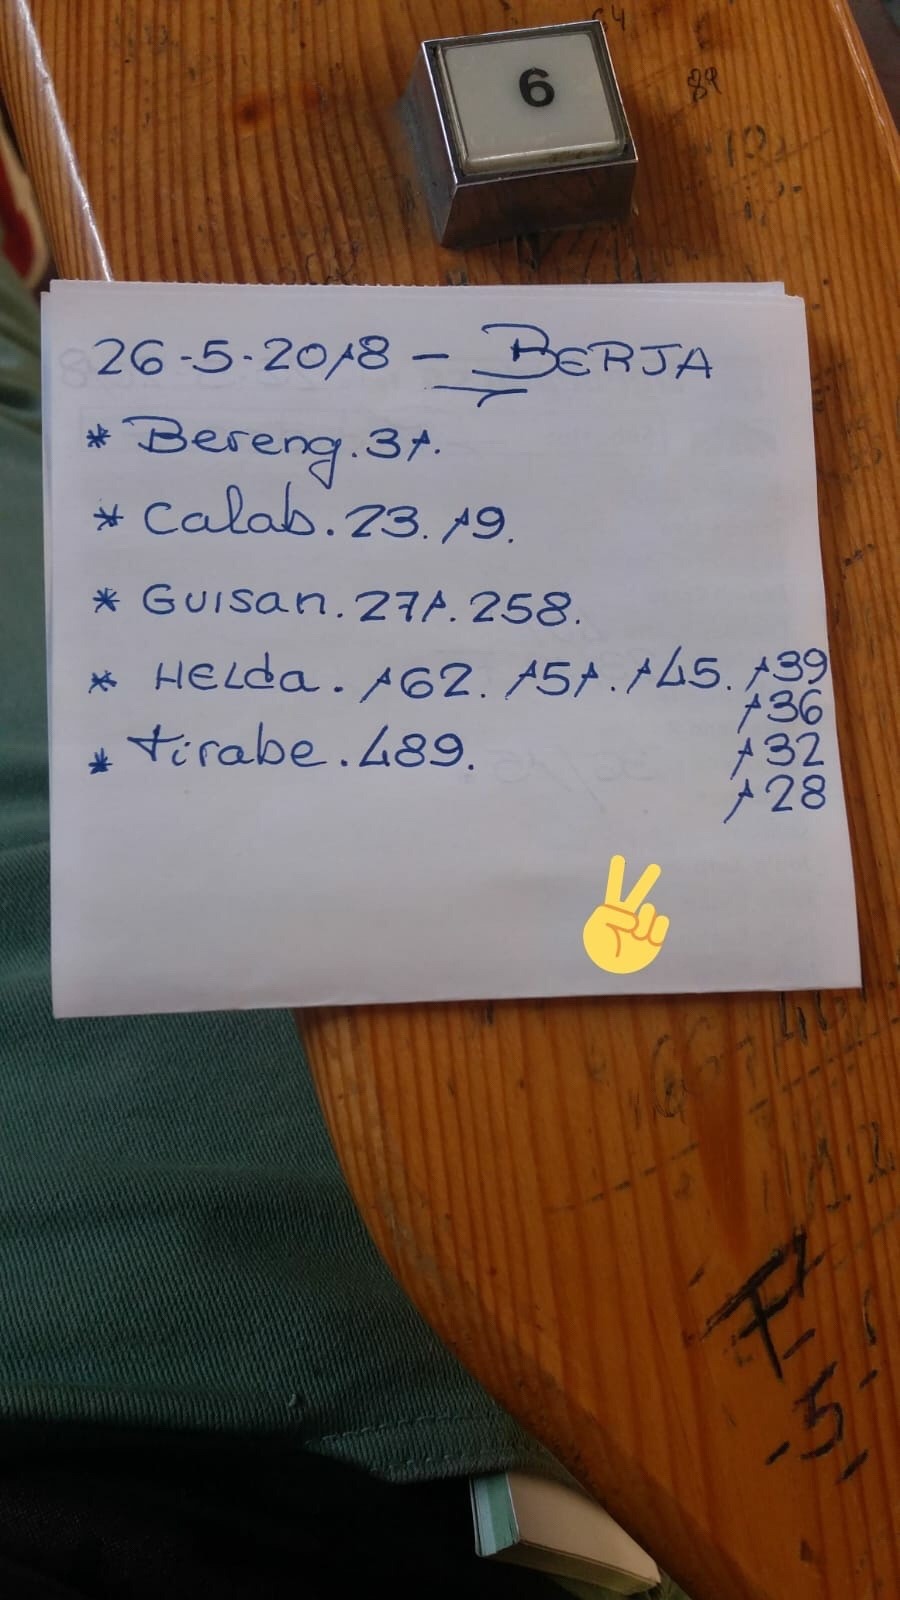 6
26-5-2018 - BERJA
* Bereng. 31.
* Calab. 23. 19.
* Guisan. 271. 258.
* HELda. 162. 151. 145. 139
136
* tirabe. 489. 132
128
F1
-5-